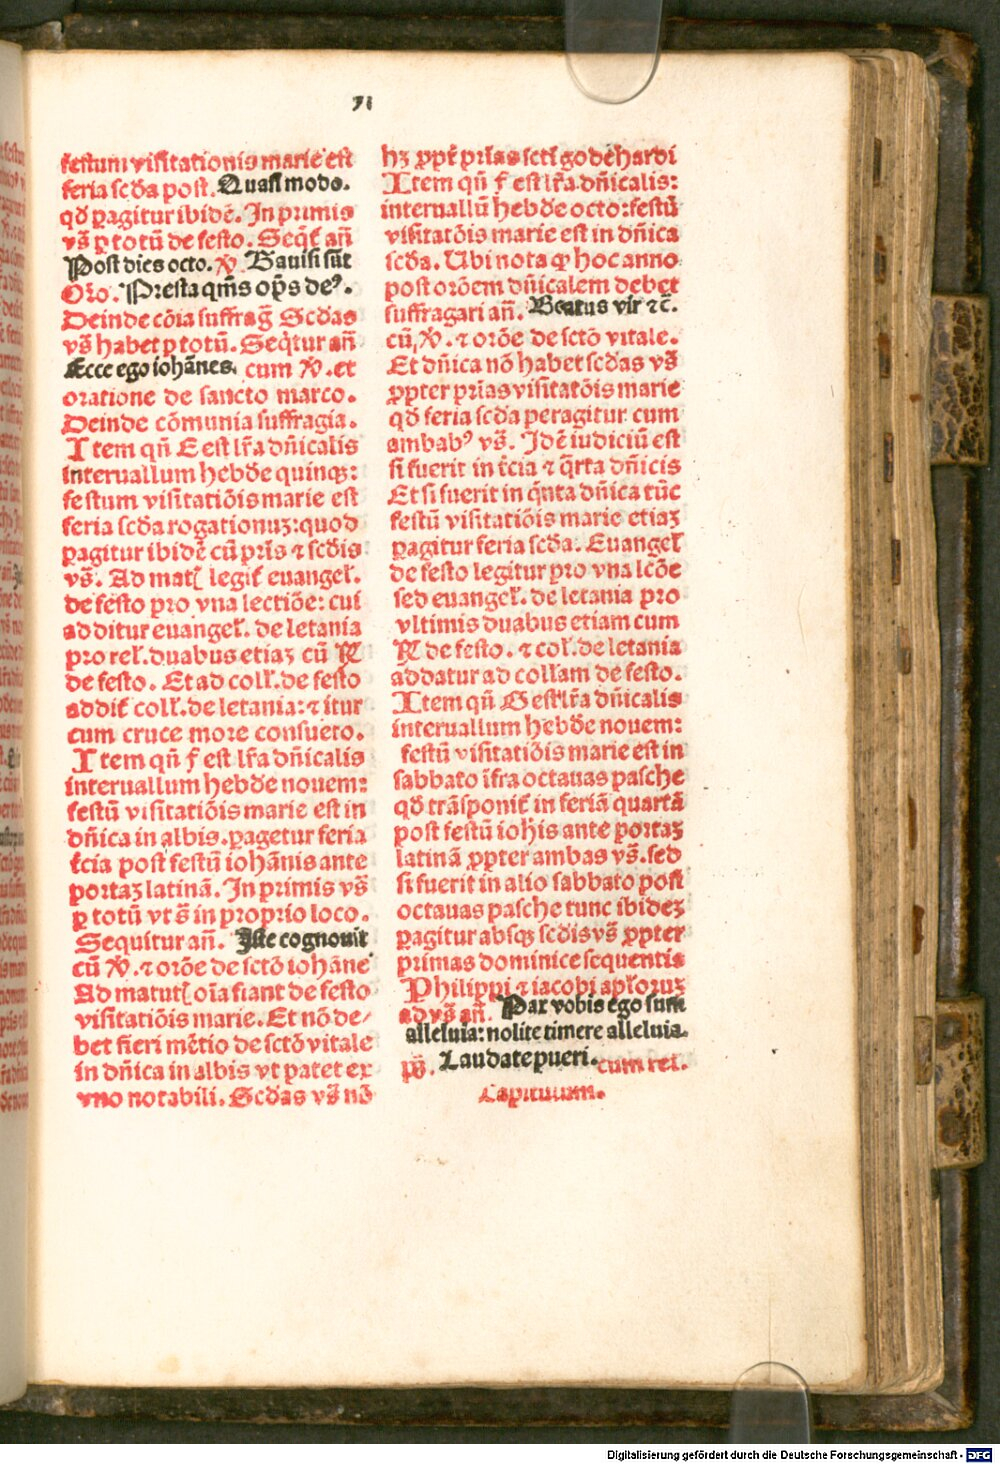 71
festum visitationis marie est
feria scd̄a post. Quasi modo.
qd̄ ꝑagitur ibidē. In primis
vs̄ ꝑ totū de festo. Seqt̄ an̄
Post dies octo. ℣ Gauisi sūt
Oro. Presta qm̄s op̄s deꝰ.
Deinde cōia suffraḡ Scd̄as
vs̄ habet ꝑ totū. Seqt̄ur an̄
Ecce ego iohānes. cum ℣. et
oratione de sancto marco.
Deinde cōmunia suffragia.
Item qn̄ E est lr̄a dn̄icalis
interuallum hebd̄e quinqꝫ:
festum visitatiōis marie est
feria scd̄a rogationuꝫ: quod
ꝑagitur ibidē cū pr̄is ⁊ scd̄is
vs̄. Ad mat᷑ legit᷑ euangel̄.
de festo pro vna lectiōe: cui
additur euangel̄. de letania
pro rel̄. duabus etiaꝫ cū ℟
de festo. Et ad coll̄. de festo
addit᷑ coll̄. de letania: ⁊ itur
cum cruce more consueto.
Item qn̄ f est lr̄a dn̄icalis
interuallum hebd̄e nouem:
festū visitatiōis marie est in
dn̄ica in albis. ꝑagetur feria
t̄cia post festū iohānis ante
portaꝫ latinā. In primis vs̄
ꝑ totū vt s̄ in proprio loco.
Sequitur an̄. Iste cognouit
cū ℣. ⁊ orōe de sctō iohāne
Ad matut᷑ oīa fiant de festo
visitatiōis marie. Et nō de/
bet fieri mētio de sctō vitale
in dn̄ica in albis vt patet ex
vno notabili. Scd̄as vs̄ nō
hꝫ ꝓpt̄ pr̄ias scti godehardi
Item qn̄ f est lr̄a dn̄icalis:
interuallū hebd̄e octo: festū
visitatōis marie est in dn̄ica
scd̄a. Ubi nota ꝙ hoc anno
post orōem dn̄icalem debet
suffragari an̄. Beatus vir ⁊c̄.
cū ℣. ⁊ orōe de sctō vitale.
Et dn̄ica nō habet scd̄as vs̄
ꝓpter pr̄ias visitatōis marie
qd̄ feria scd̄a peragitur cum
ambabꝰ vs̄. Idē iudiciū est
si fuerit in t̄cia ⁊ q̄rta dn̄icis
Et si fuerit in q̄nta dn̄ica tūc
festū visitatiōis marie etiaꝫ
ꝑagitur feria scd̄a. Euangel̄
de festo legitur pro vna lcōe
sed euangel̄. de letania pro
vltimis duabus etiam cum
℟ de festo. ⁊ col̄. de letania
addatur ad collam de festo.
Item qn̄ G est lr̄a dn̄icalis
interuallum hebd̄e nouem:
festū visitatiōis marie est in
sabbato īfra octauas pasche
qd̄ trāsponit᷑ in feriā quartā
post festū iohis ante portaꝫ
latinā ꝓpter ambas vs̄. sed
si fuerit in alio sabbato post
octauas pasche tunc ibideꝫ
ꝑagitur absqꝫ scd̄is vs̄ ꝓpter
primas dominice sequentis
Philippi ⁊ iacobi apl̄oruꝫ
ad vs̄ an̄. Pax vobis ego sum
alleluia: nolite timere alleluia.
ps̄. Laudate pueri. cum rel.
Capitulum.
Digitalisierung gefördert durch die Deutsche Forschungsgemeinschaft - DFG